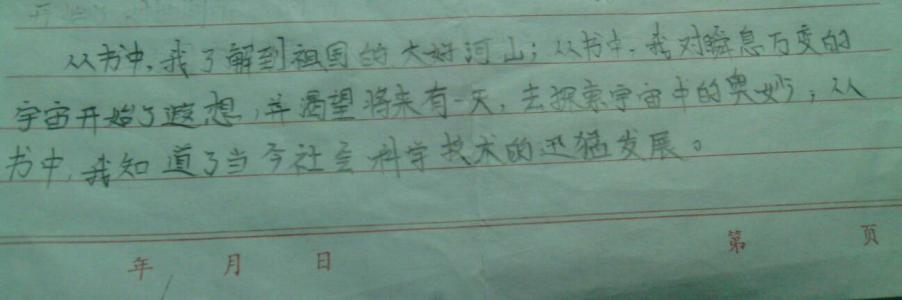 从书中，我了解到祖国的大好河山；从书中，我对瞬息万变的
宇宙开始了遐想，并渴望将来有一天，去探索宇宙中的奥妙；从
书中，我知道了当今社会科学技术的迅猛发展。
年 月 日 第 页